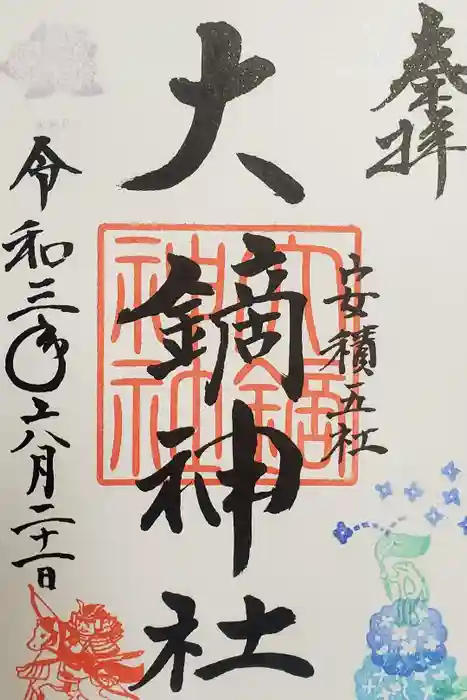 奉拝
安積五社
大鏑神社
大鏑
神社
令和三年六月二十一日